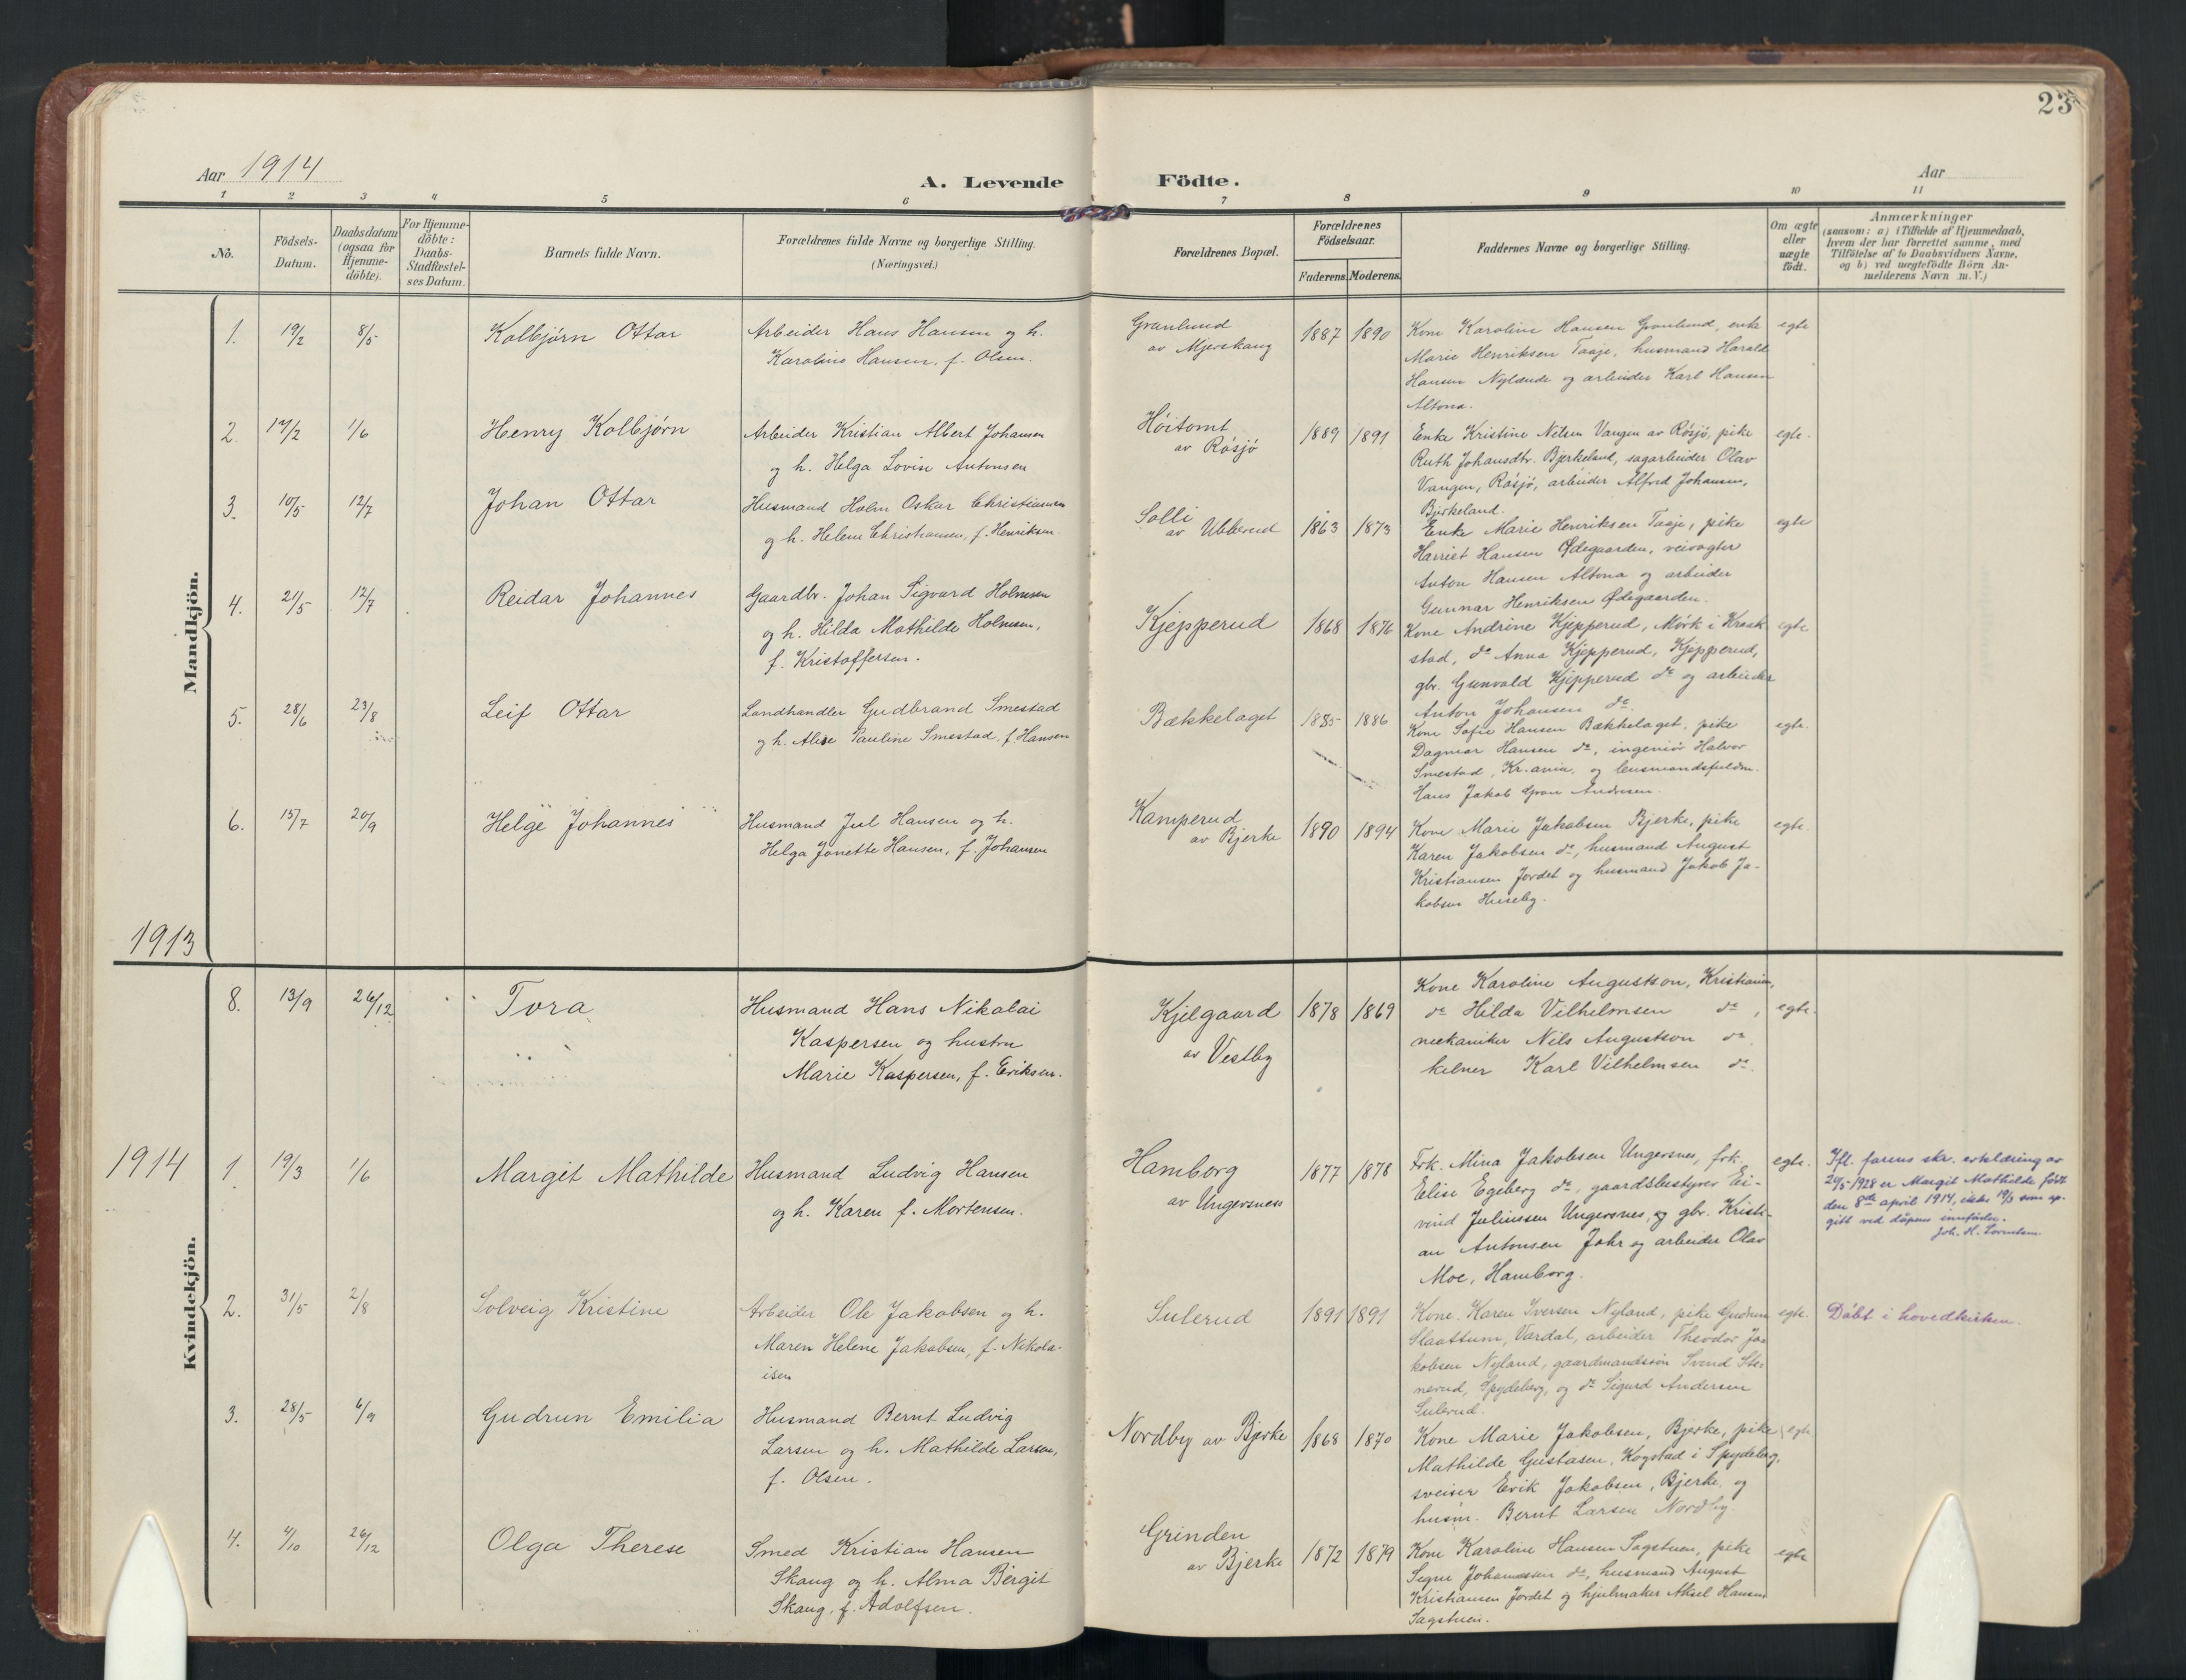 23
Aar 1914
A. Levende Födte.
Aar
1 2 3 4 5 6 7 8 9 10 11
No.
Födsels-
Datum.
Daabsdatum
(ogsaa for
Hjemme-
döbte).
For Hjemme-
döbte:
Daabs-
Stadfæstel-
ses Datum.
Barnets fulde Navn.
Forældrenes fulde Navne og borgerlige Stilling.
(Næringsvei.)
Forældrenes Bopæl.
Forældrenes
Födselsaar.
Faderens. Moderens.
Faddernes Navne og borgerlige Stilling.
Om ægte
eller
uægte
födt.
Anmærkninger
(saasom: a) i Tilfælde af Hjemmedaab,
hvem der har forrettet samme, med
Tilföielse af to Daabsvidners Navne,
og b) ved uægtefödte Börn An-
melderens Navn m. V.)
Mandkjön.
1. 19/2 8/5 Kolbjørn Ottar
Arbeider Hans Hansen og h.
Karoline Hansen, f. Olsen.
Granlund
av Mjerskaug
1887 1890
Kone Karoline Hansen Granlund, enke
Marie Henriksen Taaje, husmand Harald
Hansen Nylænde og arbeider Karl Hansen
Altona.
egte
2. 17/2 1/6 Henry Kolbjørn
Arbeider Kristian Albert Johansen
og h. Helga Lovise Antonsen
Høitomt
av Røsjø
1889 1891
Enke Kristine Nilsen Vangen av Røsjø, pike
Ruth Johansdtr. Bjerkeland, sagarbeider Olav
Vangen, Røsjø, arbeider Alfred Johansen,
Bjerkeland.
egte.
3. 10/5 12/7 Johan Ottar
Husmand Holm Oskar Christiansen
og h. Helene Christiansen, f. Henriksen.
Solli
av Ubberud
1863 1873
Enke Marie Henriksen Taaje, pike
Harriet Hansen Ødegaarden, veivogter
Anton Hansen Altona og arbeider
Gunnar Henriksen Ødegaarden.
egte
4. 21/5 12/7 Reidar Johannes
Gaardbr. Johan Sigvard Holmsen
og h. Hilda Mathilde Holmsen,
f. Kristoffersen.
Kjepperud
1868 1876
Kone Andrine Kjepperud, Mørk i Kraak
stad, do Anna Kjepperud, Kjepperud,
gbr. Gunvald Kjepperud do og arbeider
Anton Johansen do.
egte
5. 28/6 23/8 Leif Ottar
Landhandler Gudbrand Smestad
og h. Alise Pauline Smestad, f. Hansen
Bækkelaget
1885 1886
Kone Sofie Hansen Bækkelaget, pike
Dagmar Hansen do, ingeniør Halvor
Smestad, Kr.ania, og lensmandsfuldm.
Hans Jakob Gran Andresen.
egte.
6. 15/7 20/9 Helge Johannes
Husmand Jul Hansen og h.
Helga Jonette Hansen, f. Johansen
Kamperud
av Bjerke
1890 1894
Kone Marie Jakobsen Bjerke, pike
Karen Jakobsen do, husmand August
Kristiansen Jordet og husmand Jakob Ja-
kobsen Huseby.
egte.
1913
Kvindekjön.
8. 13/9 26/12 Tora
Husmand Hans Nikolai
Kaspersen og hustru
Marie Kaspersen, f. Eriksen.
Kjelgaard
av Vestby
1878 1869
Kone Karoline Augustson, Kristiania,
do Hilda Vilhelmsen do,
mekaniker Nils Augustson do
kelner Karl Vilhelmsen do.
egte.
1914
1. 19/3 1/6 Margit Mathilde
Husmand Ludvig Hansen
og h. Karen f. Mortensen.
Hamborg
av Ungersnes
1877 1878
Frk. Mina Jakobsen Ungersnes, frk.
Elise Egeberg do, gaardsbestyrer Ei-
vind Juliussen Ungersnes, og gbr. Kristi-
an Antonsen Johr og arbeider Olav
Moe, Hamborg.
egte.
Ifl. farens skr. erklæring av
24/5 1928 er Margit Mathilde født
den 8de april 1914, ikke 19/3 som op-
gitt ved dåpens innførelse.
Joh. H. Lorentsen.
2. 31/5 2/8 Solveig Kristine
Arbeider Ole Jakobsen og h.
Maren Helene Jakobsen, f. Nikola-
isen
Sulerud
1891 1891
Kone Karen Iversen Nyland, pike Gudrun
Slaattum, Vardal, arbeider Theodor Ja-
kobsen Nyland, gaardmandssøn Svend Ste-
nerud, Spydeberg, og do Sigurd Andersen
Sulerud.
egte.
Døbt i hovedkirken.
3. 28/5 6/9 Gudrun Emilia
Husmand Bernt Ludvig
Larsen og h. Mathilde Larsen,
f. Olsen.
Nordby av Bjerke
1868 1870
Kone Marie Jakobsen, Bjerke, pike
Mathilde Gustasen, Kogstad i Spydeberg,
sveiser Erik Jakobsen, Bjerke, og
husm. Bernt Larsen Nordby.
egte
4. 4/10 26/12 Olga Therese
Smed Kristian Hansen
Skaug og h. Alma Bergit
Skaug, f. Adolfsen.
Grinden
av Bjerke
1872 1879
Kone Karoline Hansen Sagstuen, pike
Signe Johannessen do, husmand August
Kristiansen Jordet og hjulmaker Aksel Hansen
Sagstuen.
egte